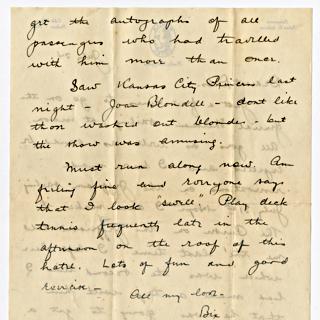 get the autographs of all
passengers who had travelled
with him more than once.
Saw Kansas City Princess last
night - Joan Blondell - dont like
them washed out blondes - but
the show was amusing.
Must run along now. Am
feeling fine and everyone says
that I look "swell". Play deck
tennis frequently late in the
afternoon on the roof of this
hotel. Lots of fun and good
exercise -
All my love -
Bix